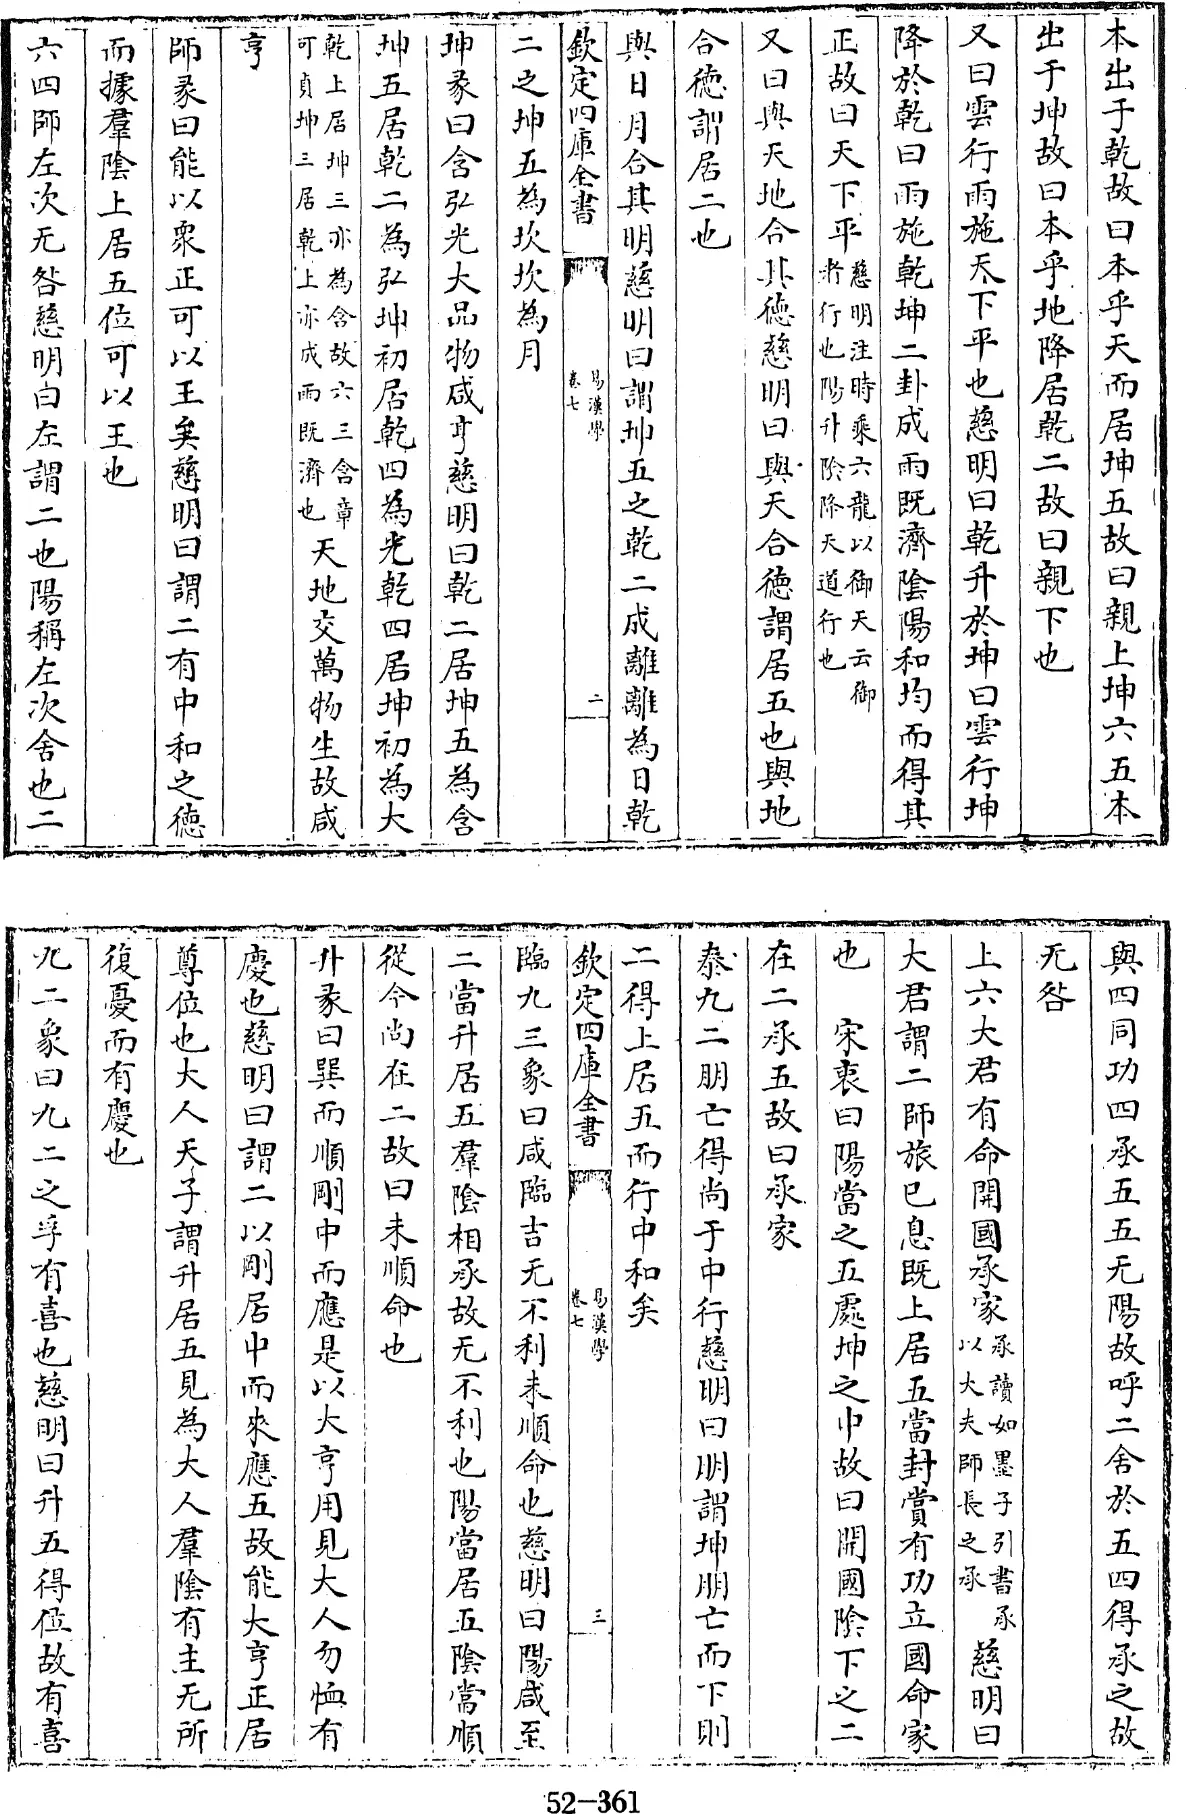 本出于乾故曰本乎天而居坤五故曰親上坤六五本
出于坤故曰本乎地降居乾二故曰親下也
又曰雲行雨施天下平也慈明曰乾升於坤曰雲行坤
降於乾曰雨施乾坤二卦成兩既濟陰陽和均而得其
正故曰天下平慈明注時乘六龍以御天云御者行也陽升陰降天道行也
又曰與天地合其德慈明曰與天合德謂居五也與地
合德謂居二也
與日月合其明慈明曰謂坤五之乾二成離離為日乾
欽定四庫全書
易漢學
卷七
二
二之坤五為坎坎為月
坤彖曰含弘光大品物咸亨慈明曰乾二居坤五為含
坤五居乾二為弘坤初居乾四為光乾四居坤初為大
乾上居坤三亦為含故六三含章可貞坤三居乾上亦成兩既濟也天地交萬物生故咸
亨
師彖曰能以衆正可以王矣慈明曰謂二有中和之德
而據羣陰上居五位可以王也
六四師左次无咎慈明曰左謂二也陽稱左次舍也二
與四同功四承五五无陽故呼二舍於五四得承之故
无咎
上六大君有命開國承家承讀如墨子引書承以大夫師長之承慈明曰
大君謂二師旅已息既上居五當封賞有功立國命家
也 宋衷曰陽當之五處坤之中故曰開國陰下之二
在二承五故曰承家
泰九二朋亡得尚于中行慈明曰朋謂坤朋亡而下則
二得上居五而行中和矣
欽定四庫全書
易漢學
卷七
三
臨九三象曰咸臨吉无不利未順命也慈明曰陽咸至
二當升居五羣陰相承故无不利也陽當居五陰當順
從今尚在二故曰未順命也
升彖曰巽而順剛中而應是以大亨用見大人勿恤有
慶也慈明曰謂二以剛居中而來應五故能大亨正居
尊位也大人天子謂升居五見為大人羣陰有主无所
復憂而有慶也
九二象曰九二之孚有喜也慈明曰升五得位故有喜
52-361